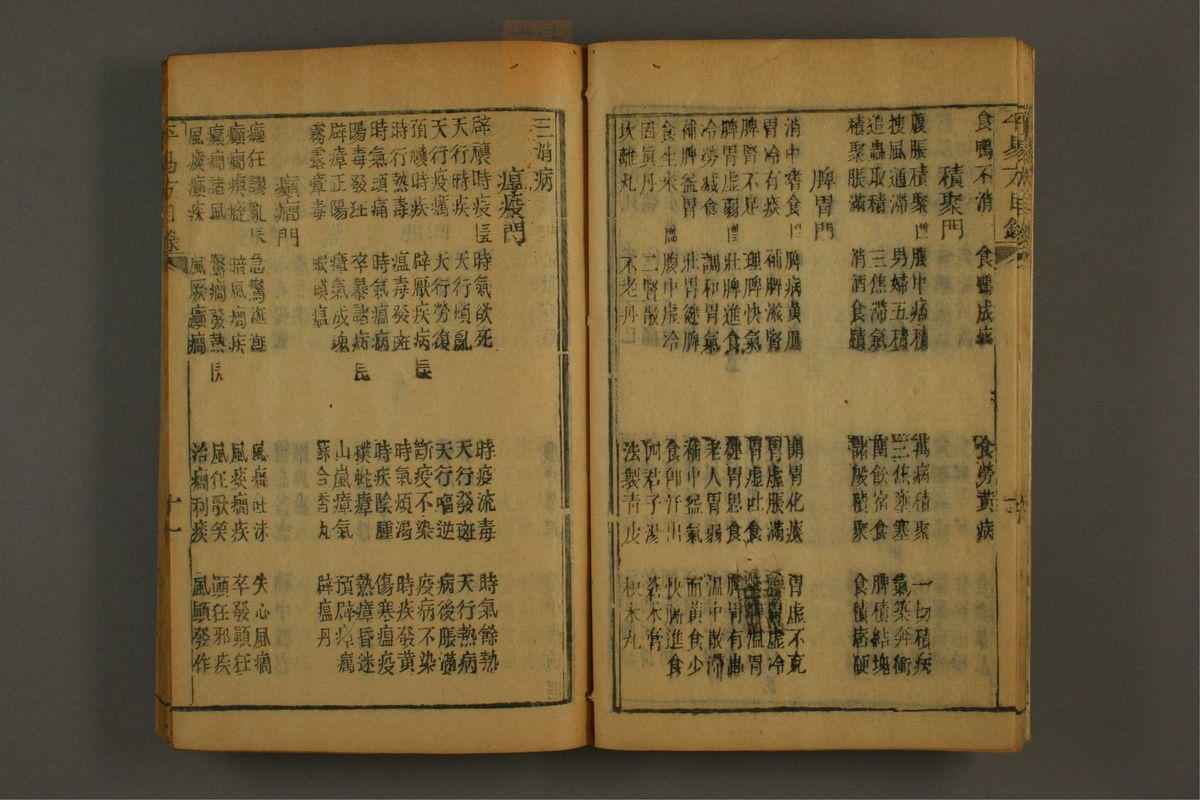 食鴨不消 食鴨成病 食勞黃病
積聚門
腹脹積聚 腹中痛積 萬病積聚 一切積病
搜風通滯 男婦五積 三焦壅塞 氣築奔衝
追蟲取積 三焦滯氣 酒飲宿食 脾積結塊
積聚脹滿 消酒食積 諸般積聚 食積痞硬
脾胃門
消中嗜食 脾病黃 開胃化痰 胃虛不克
胃冷有痰 補脾滋腎 胃虛脹滿 虛冷
脾腎不足 理脾快氣 胃虛吐食 溫胃
脾胃虛弱 壯脾進食 健胃思食 脾胃有蟲
冷勞減食 調和胃氣 老人胃弱 溫中散滯
補脾益胃 壯胃健脾 補中益氣 面黃食少
食生米 腹中虛冷 食即汗出 快膈進食
固真丹 二賢散 四君子湯 蒼朮膏
坎離丸 不老丹 法製青皮 枳朮丸
三消病
瘟疫門
辟禳時疫 時氣欲死 時疫流毒 時氣餘熱
天行時疾 天行煩亂 天行發斑 天行熱病
天行疫癘 天行勞復 天行嘔逆 病後脹滿
預禳時疾 辟厭疾病 斷疫不染 疫病不染
時行熱毒 瘟毒發斑 時氣煩渴 時疾發黃
時氣頭痛 時氣瘟病 時疾陰腫 傷寒瘟疫
陽毒發狂 卒暴諸病 瘴 熱瘴昏迷
辟瘴正陽 瘴氣成塊 山嵐瘴氣 預辟瘴癘
霧露瘴毒 瞑瘟 蘇合香丸 辟瘟丹
癲癇門
癲狂謬亂 急驚涎潮 風癇吐沫 失心風癇
癲癇痰 暗風癇疾 風痰癇疾 卒發顛狂
癲癇諸風 驚癇發熱 風狂歌笑 顛狂邪疾
風痰癲疾 風厥癲癇 治癇利痰 風顛發作